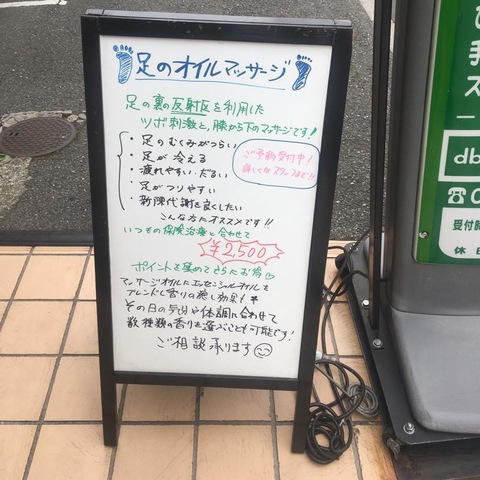 足のオイルマッサージ
足の裏の反射区を利用した
ツボ刺激と、膝から下のマッサージです！
・足のむくみがつらい
・足が冷える
・疲れやすい・だるい
・足がつりやすい
・新陳代謝を良くしたい
こんな方にオススメです!!
ご予約受付中！
詳しくはスタッフまで!!
いつもの保険治療と合わせて
¥2,500
ポイントを貯めてさらにお得♡
マッサージオイルにエッセンシャルオイルを
ブレンドし香りの癒し効果も
その日の気分や体調に合わせて
数種類の香りを選ぶことも可能です！
ご相談承ります
手
ス
db
受付時
休